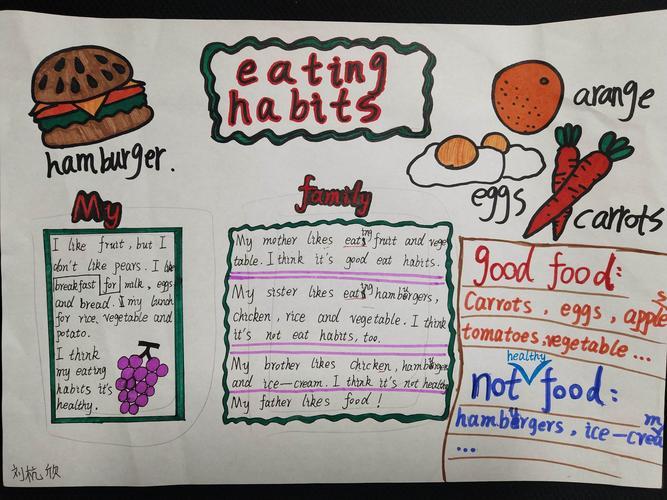 eating
habits
hamburger.
arange
eggs
carrots
My
I like fruit, but I
don't like pears. I like
breakfast for milk, eggs
and bread. I my lunch
for rice, vegetable and
potato.
I think
my eating
habits it's
healthy.
family
My mother likes eating fruit and vege
table. I think it's good eat habits.
My sister likes eating hambergers,
chicken, rice and vegetable. I think
it's not eat habits, too.
My brother likes chicken, hamburgers
and ice-cream. I think it's not healthy
My father likes food!
good food:
Carrots, eggs, apples
tomatoes, vegetable ...
healthy
not food:
hambergers, ice-cream
...
刘杭欣